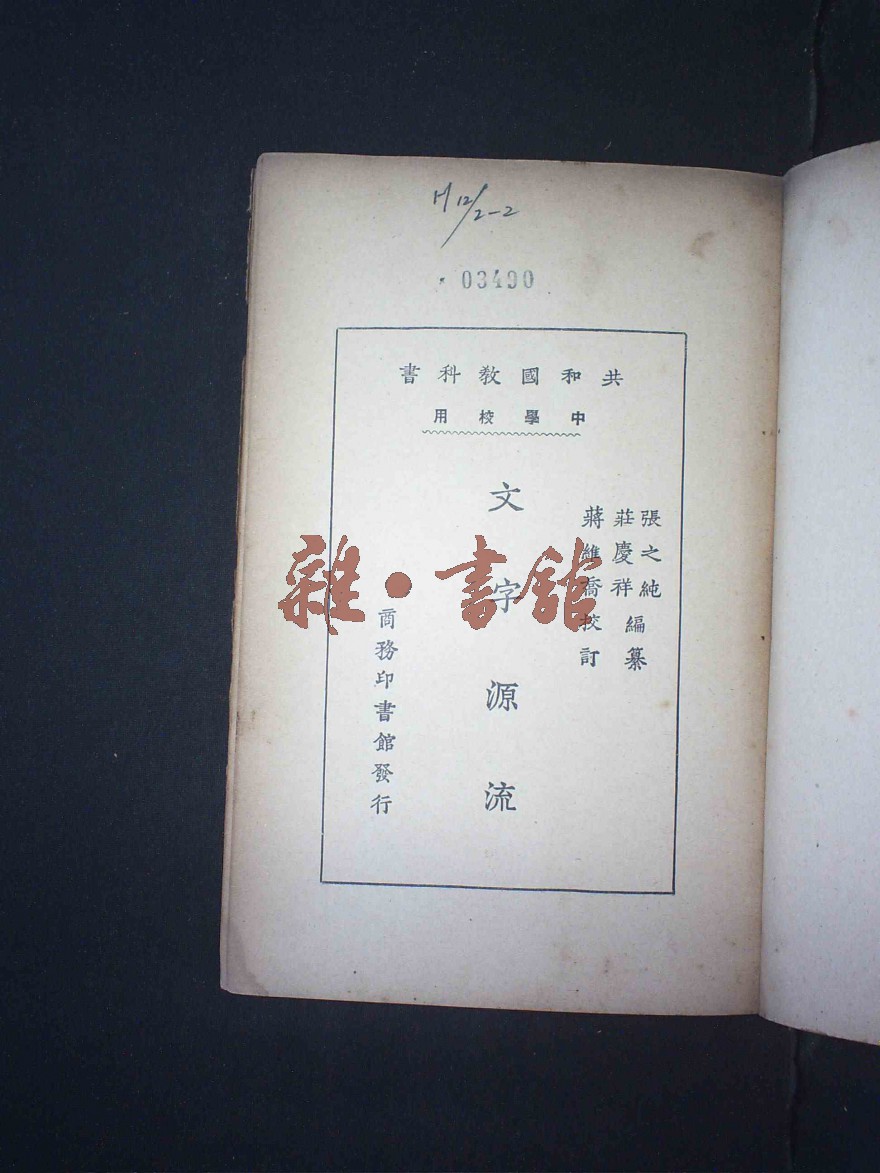 H 12/2-2
03490
共和國教科書
中學校用
張之純
莊慶祥 編纂
蔣維喬校訂
文字源流
商務印書館發行
雜·書館